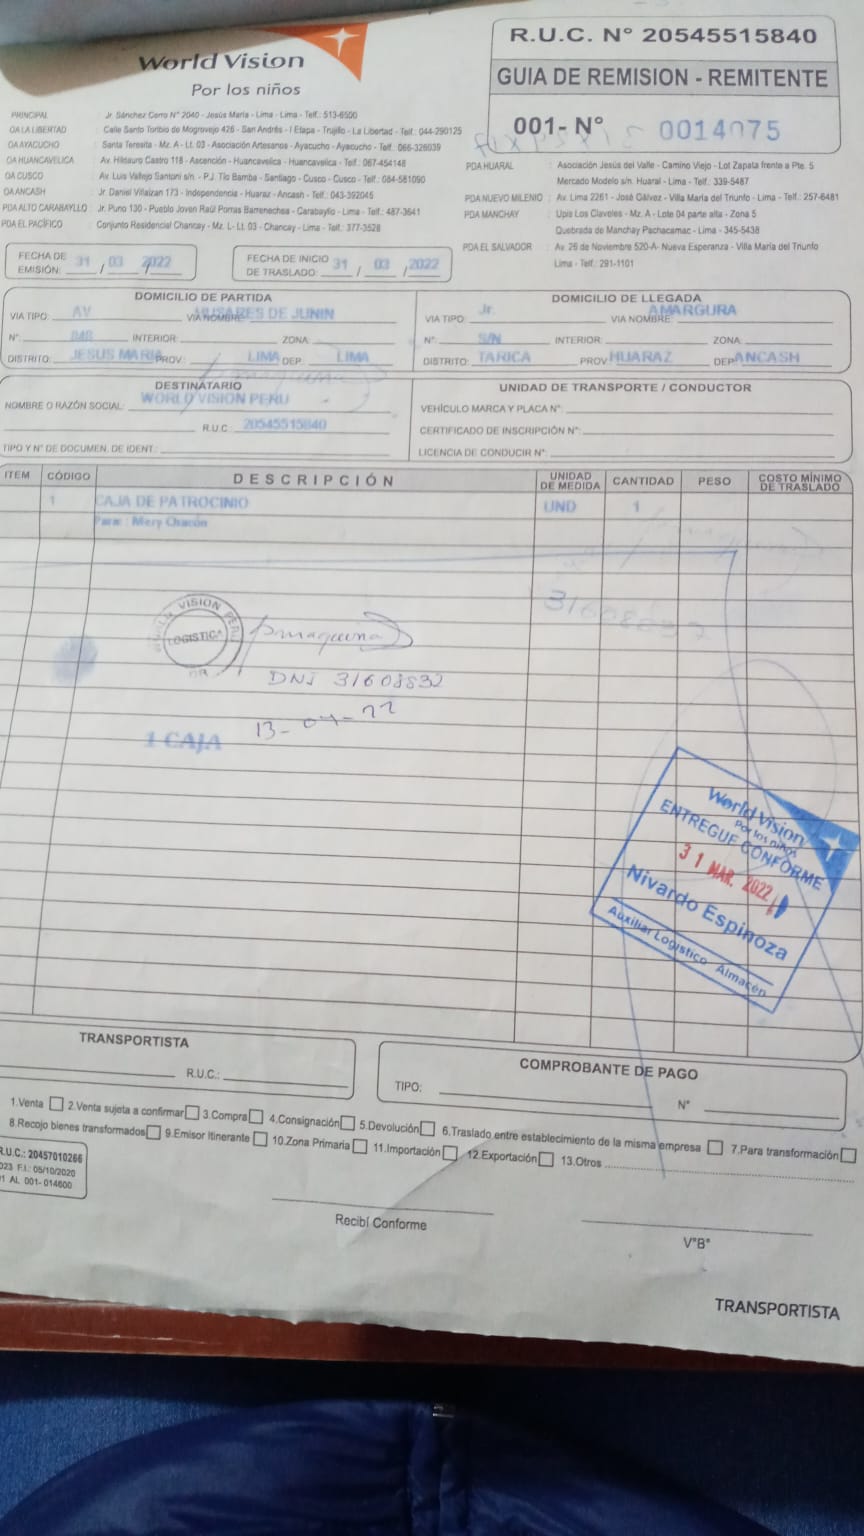 World Vision
Por los niños
R.U.C. N° 20545515840
GUIA DE REMISION - REMITENTE
001- N° 0014075
PRINCIPAL : Jr. Sánchez Cerro N° 2040 - Jesús María - Lima - Lima - Telf.: 513-6500
OA LA LIBERTAD : Calle Santo Toribio de Mogrovejo 426 - San Andrés - I Etapa - Trujillo - La Libertad - Telf.: 044-290125
OA AYACUCHO : Santa Teresita - Mz. A - Lt. 03 - Asociación Artesanos - Ayacucho - Ayacucho - Telf.: 066-326039
OA HUANCAVELICA : Av. Hildauro Castro 118 - Ascención - Huancavelica - Huancavelica - Telf.: 067-454148
OA CUSCO : Av. Luis Vallejo Santoni s/n. - P.J. Tío Bamba - Santiago - Cusco - Cusco - Telf.: 084-581090
OA ANCASH : Jr. Daniel Villaizan 173 - Independencia - Huaraz - Ancash - Telf.: 043-392045
PDA ALTO CARABAYLLO : Jr. Puno 130 - Pueblo Joven Raúl Porras Barrenechea - Carabayllo - Lima - Telf.: 487-3641
PDA EL PACÍFICO : Conjunto Residencial Chancay - Mz. L- Lt. 03 - Chancay - Lima - Telf.: 377-3528
PDA HUARAL : Asociación Jesús del Valle - Camino Viejo - Lot Zapata frente a Pte. 5
Mercado Modelo s/n. Huaral - Lima - Telf.: 339-5487
PDA NUEVO MILENIO : Av. Lima 2261 - José Gálvez - Villa María del Triunfo - Lima - Telf.: 257-6481
PDA MANCHAY : Upis Los Claveles - Mz. A - Lote 04 parte alta - Zona 5
Quebrada de Manchay Pachacamac - Lima - 345-5438
PDA EL SALVADOR : Av. 26 de Noviembre 520-A- Nueva Esperanza - Villa María del Triunfo
Lima - Telf.: 291-1101
FECHA DE EMISIÓN: 31 / 03 / 2022
FECHA DE INICIO DE TRASLADO: 31 / 03 / 2022
DOMICILIO DE PARTIDA
VIA TIPO: AV VIA NOMBRE: HUSARES DE JUNIN
N°: INTERIOR: ZONA:
DISTRITO: JESUS MARIA PROV.: LIMA DEP.: LIMA
DOMICILIO DE LLEGADA
VIA TIPO: Jr. VIA NOMBRE: AMARGURA
N°: S/N INTERIOR: ZONA:
DISTRITO: TARICA PROV HUARAZ DEP ANCASH
DESTINATARIO
NOMBRE O RAZÓN SOCIAL: WORLD VISION PERU
R.U.C: 20545515840
TIPO Y N° DE DOCUMEN. DE IDENT.:
UNIDAD DE TRANSPORTE / CONDUCTOR
VEHÍCULO MARCA Y PLACA N°:
CERTIFICADO DE INSCRIPCIÓN N°:
LICENCIA DE CONDUCIR N°:
ITEM CÓDIGO DESCRIPCIÓN UNIDAD DE MEDIDA CANTIDAD PESO COSTO MÍNIMO DE TRASLADO
1 CAJA DE PATROCINIO UND 1
Para: Mery
WORLD VISION PERU
LOGISTICA
DNI 31608832
13-04-22
1 CAJA
World Vision
Por los niños
ENTREGUE CONFORME
31 MAR. 2022
Nivardo Espinoza
Auxiliar Logístico - Almacén
TRANSPORTISTA
R.U.C.:
COMPROBANTE DE PAGO
TIPO:
N°
1.Venta 2.Venta sujeta a confirmar 3.Compra 4.Consignación 5.Devolución 6.Traslado entre establecimiento de la misma empresa 7.Para transformación
8.Recojo bienes transformados 9.Emisor Itinerante 10.Zona Primaria 11.Importación 12.Exportación 13.Otros
R.U.C.: 20457010266
023 F.I.: 05/10/2020
1 AL 001- 014600
Recibí Conforme
V°B°
TRANSPORTISTA